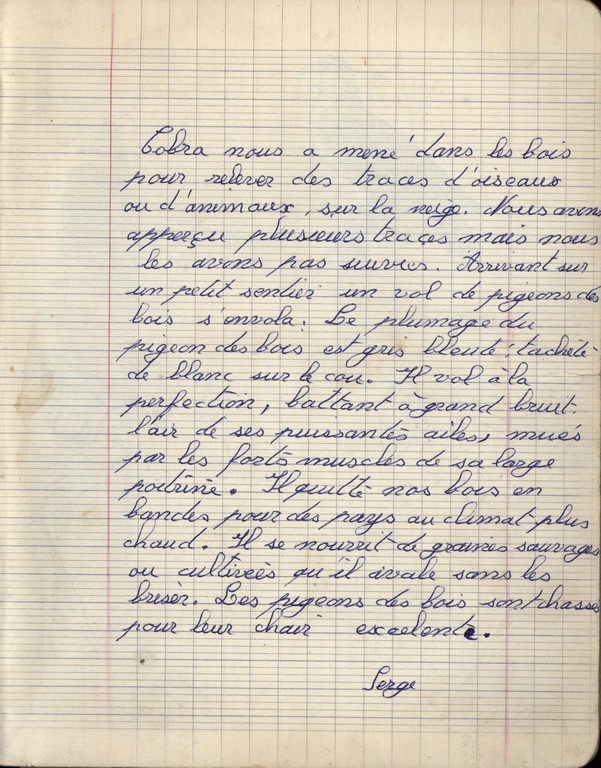 Cobra nous a mené dans les bois
pour relever des traces d'oiseaux
ou d'animaux, sur la neige. Nous avons
apperçu plusieurs traces mais nous
les avons pas suivies. Arrivant sur
un petit sentier un vol de pigeons des
bois s'envola. Le plumage du
pigeon des bois est gris bleuté, tacheté
de blanc sur le cou. Il vol à la
perfection, battant à grand bruit
l'air de ses puissantes ailes, mués
par les forts muscles de sa large
poitrine. Il quitte nos bois en
bandes pour des pays au climat plus
chaud. Il se nourrit de graines sauvages
ou cultivées qu'il avale sans les
briser. Les pigeons des bois sont chassé
pour leur chair excelente.
Serge